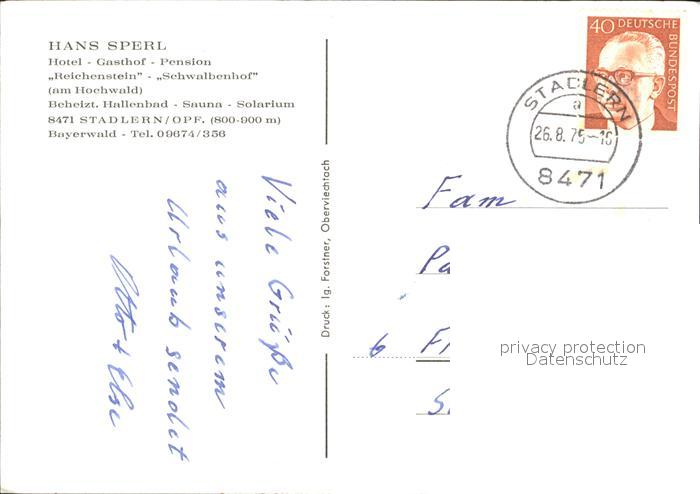 HANS SPERL
Hotel - Gasthof - Pension
„Reichenstein” - „Schwalbenhof”
(am Hochwald)
Beheizt. Hallenbad - Sauna - Solarium
8471 STADLERN/OPF. (800-900 m)
Bayerwald - Tel. 09674/356
Viele Grüße
aus unserem
Urlaub sendet
Otto + Else
Druck: Ig. Forstner, Oberviechtach
40 DEUTSCHE
BUNDESPOST
STADLERN
a
26.8.75-16
8471
Fam
Pa
6 F
S
privacy protection
Datenschutz